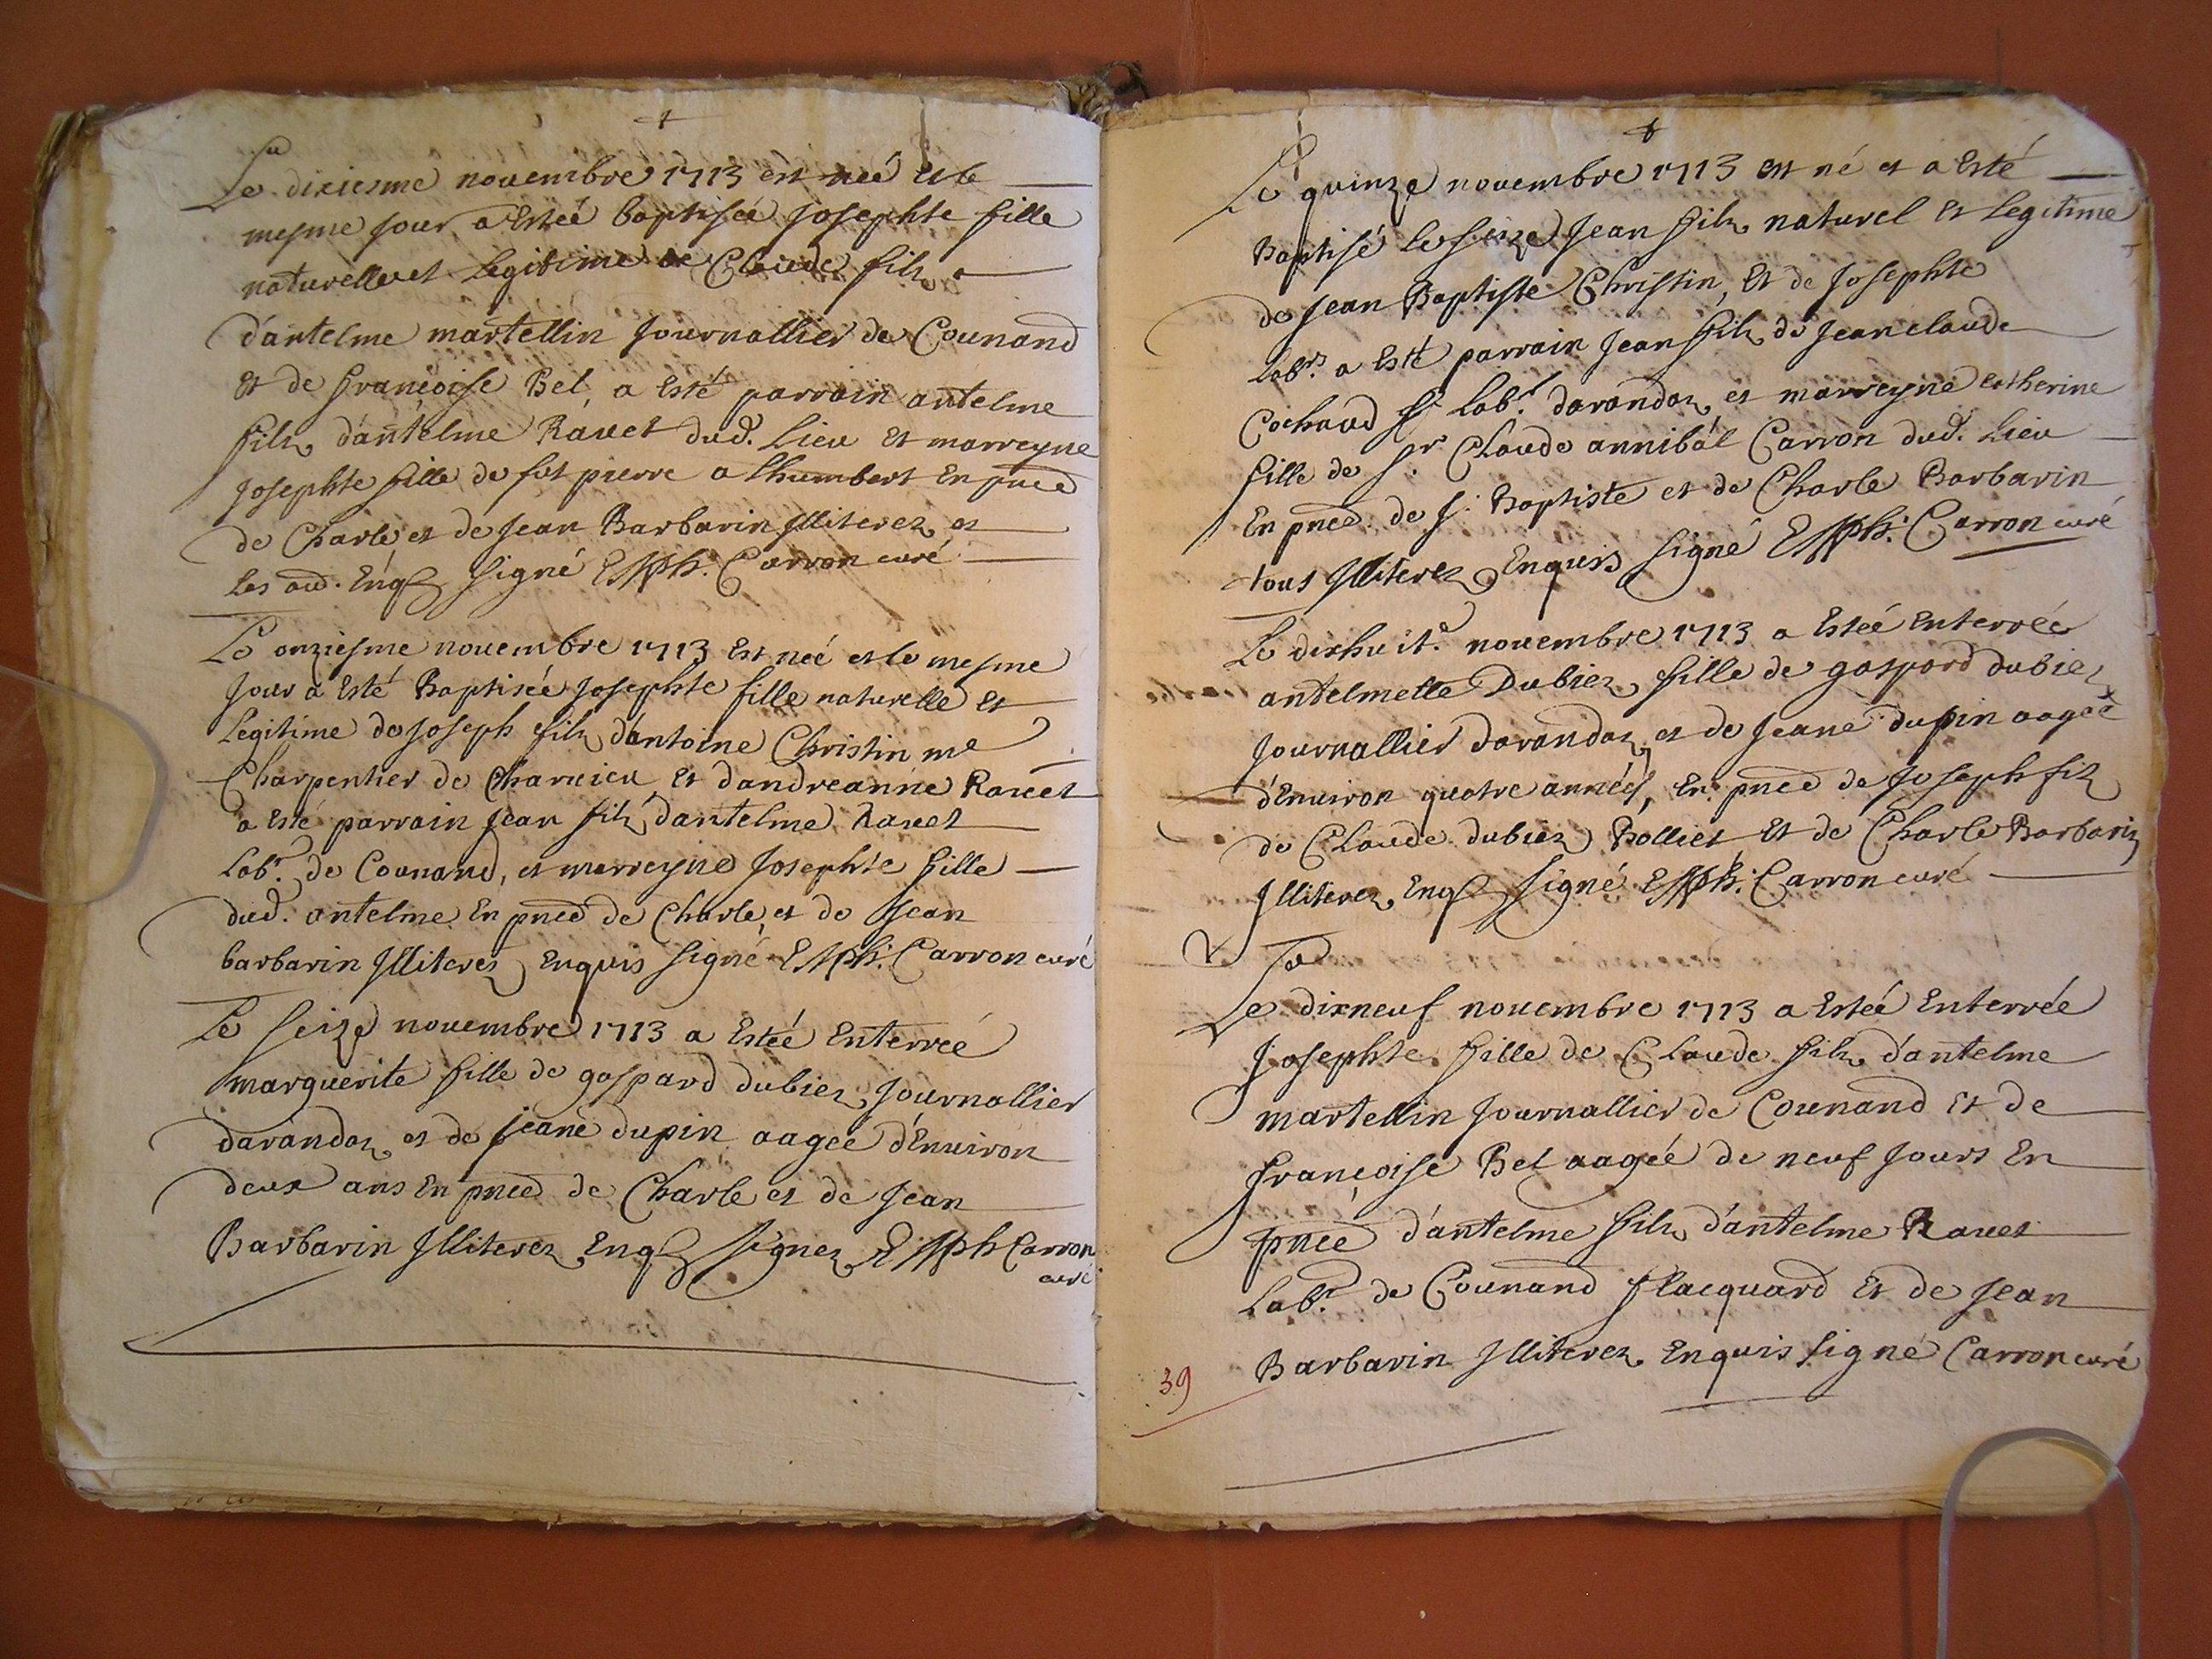 Le dixiesme novembre 1713 est neé et le
mesme jour a Esteé baptiseé Josephte fille
naturelle et Legitime de Claude filz
d'antelme martellin Journallier de Counand
Et de françoise Bel, a Esté parrain antelme
filz d'antelme Rauet dud. Lieu Et marreyne
Josephte fille de fut pierre a Lhumbert En pnce
de Charle et de Jean Barbarin Illiterez et
Les aud. Enq signé Carron curé
Le onziesme nouembre 1713 Est neé et le mesme
Jour a Esté Baptiseé Josephte fille naturelle Et
Legitime de Joseph filz d'antoine Christin me
Charpentier de Charuieu Et d'andreanne Rauet
a Esté parrain Jean filz d'antelme Rauet
Labr. de Counand, et marreyne Josephte fille
dud. antelme En pnce de Charle, et de Jean
barbarin Illiterez Enquis signé Carron curé
Le seize nouembre 1713 a Esteé Enterreé
marguerite fille de gaspard dubiez Journallier
darandaz et de Jeane dupin aageé d'Enuiron
deux ans En pnce de Charle et de Jean
Barbarin Illiterez Enq signez Carron
curé
Le quinze nouembre 1713 est né et a Esté
Baptisé le seize Jean filz naturel Et Legitime
de Jean Baptiste Christin, Et de Josephte
Labr. a Esté parrain Jean filz de Jean claude
Cochaud Labr. darandaz et marreyne catherine
fille de Sr. Claude annibal Carron dud. Lieu
En pnce de J. Baptiste et de Charle Barbarin
tous Illiterez Enquis signé Carron curé
Le dixhuit.e nouembre 1713 a Esteé Enterrée
antelmette Dubiez fille de gaspard dubiez
Journallier darandaz et de Jeane dupin aageé
d'Enuiron quatre années, En pnce de Joseph filz
de Claude dubiez Bolliet Et de Charle Barbarin
Illiterez Enq signé Carron curé
Le dixneuf nouembre 1713 a Esteé Enterrée
Josephte fille de Claude filz d'antelme
martellin Journallier de Counand Et de
françoise Bel aageé de neuf Jours En
pnce d'antelme filz d'antelme Rauet
Labr. de Counand flacquard Et de Jean
Barbarin Illiterez Enquis signé Carron curé
39